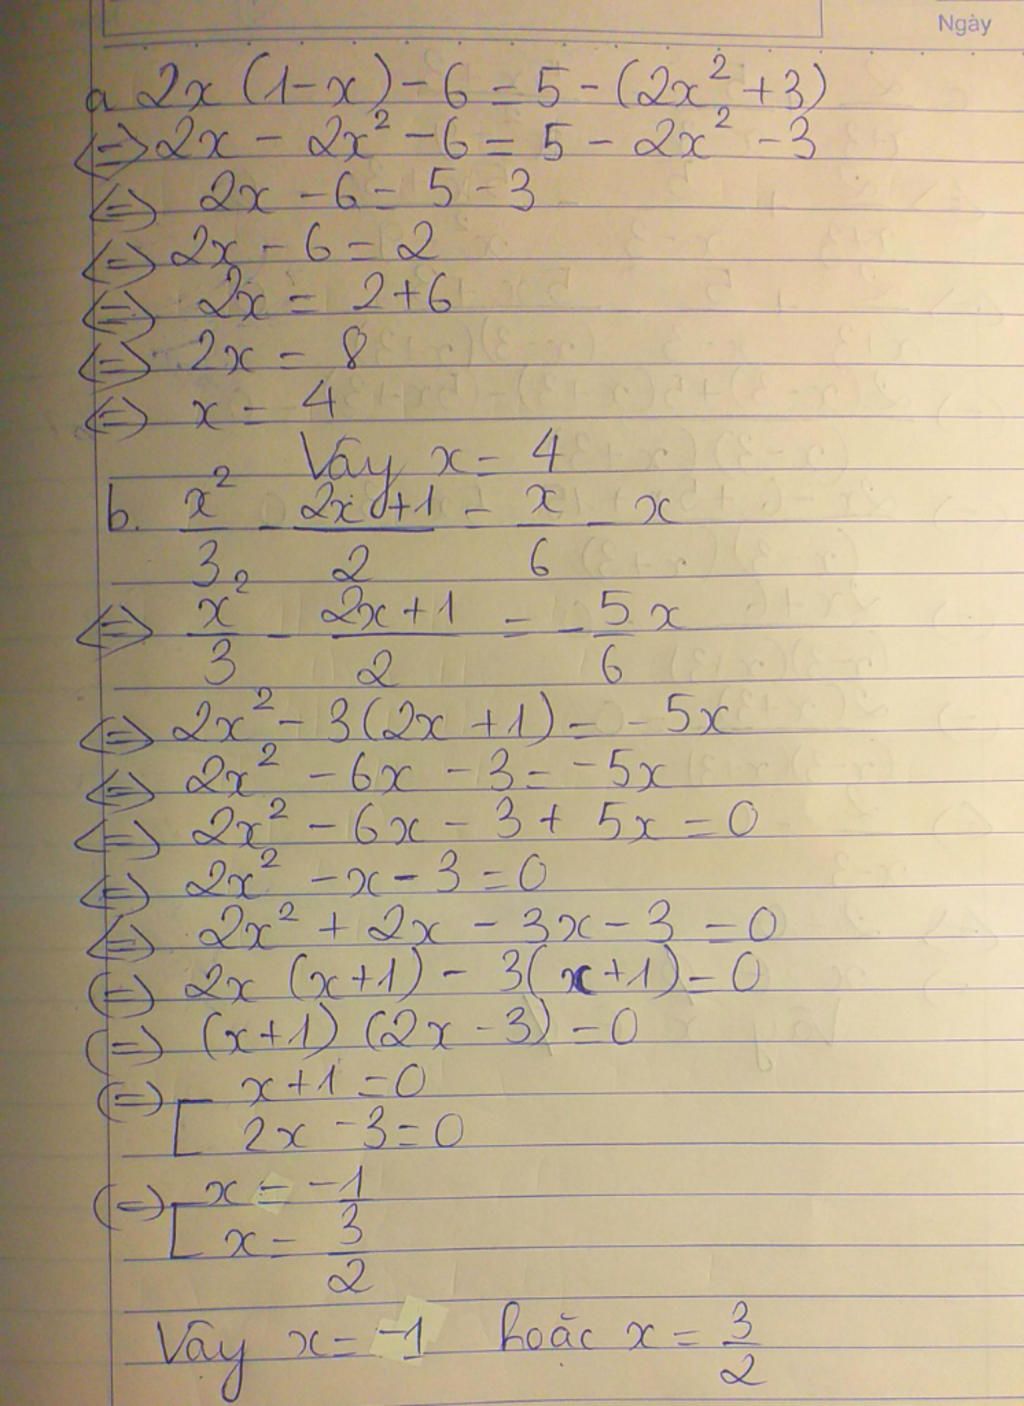 Ngày
a 2x (1-x) - 6 = 5 - (2x² + 3)
<=> 2x - 2x² - 6 = 5 - 2x² - 3
<=> 2x - 6 = 5 - 3
<=> 2x - 6 = 2
<=> 2x = 2+6
<=> 2x = 8
<=> x = 4
Vây x = 4
b. x²/3 - (2x+1)/2 = x/6 - x
<=> x²/3 - (2x+1)/2 = - 5/6 x
<=> 2x² - 3(2x +1) = - 5x
<=> 2x² - 6x - 3 = -5x
<=> 2x² - 6x - 3 + 5x = 0
<=> 2x² - x - 3 = 0
<=> 2x² + 2x - 3x - 3 = 0
(=) 2x (x+1) - 3(x+1) = 0
(=) (x+1) (2x - 3) = 0
(=) [ x+1 = 0
2x - 3 = 0
(=) [ x = -1
x = 3/2
Vây x = -1 hoăc x = 3/2